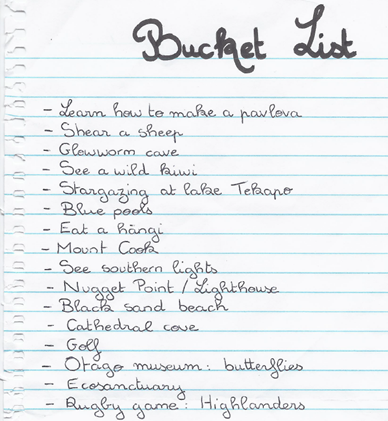 Bucket List
- Learn how to make a pavlova
- Shear a sheep
- Glowworm cave
- See a wild kiwi
- Stargazing at lake Tekapo
- Blue pools
- Eat a hāngi
- Mount Cook
- See southern lights
- Nugget Point / Lighthouse
- Black sand beach
- Cathedral cove
- Golf
- Otago museum: butterflies
- Ecosanctuary
- Rugby game: Highlanders